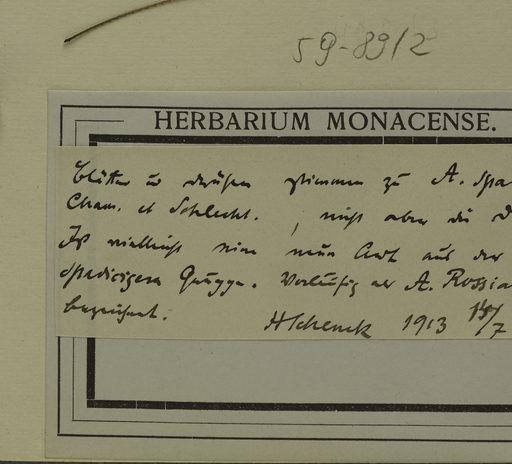 59-8912
HERBARIUM MONACENSE.
Blätter u. Drüsen stimmen zu A. spa
Cham. et Schlecht., nicht aber die D
Ist vielleicht eine neue Art aus der
spadicigera Gruppe. Vorläufig als A. Rossia
bezeichnet.
HSchenck 1913 15/7